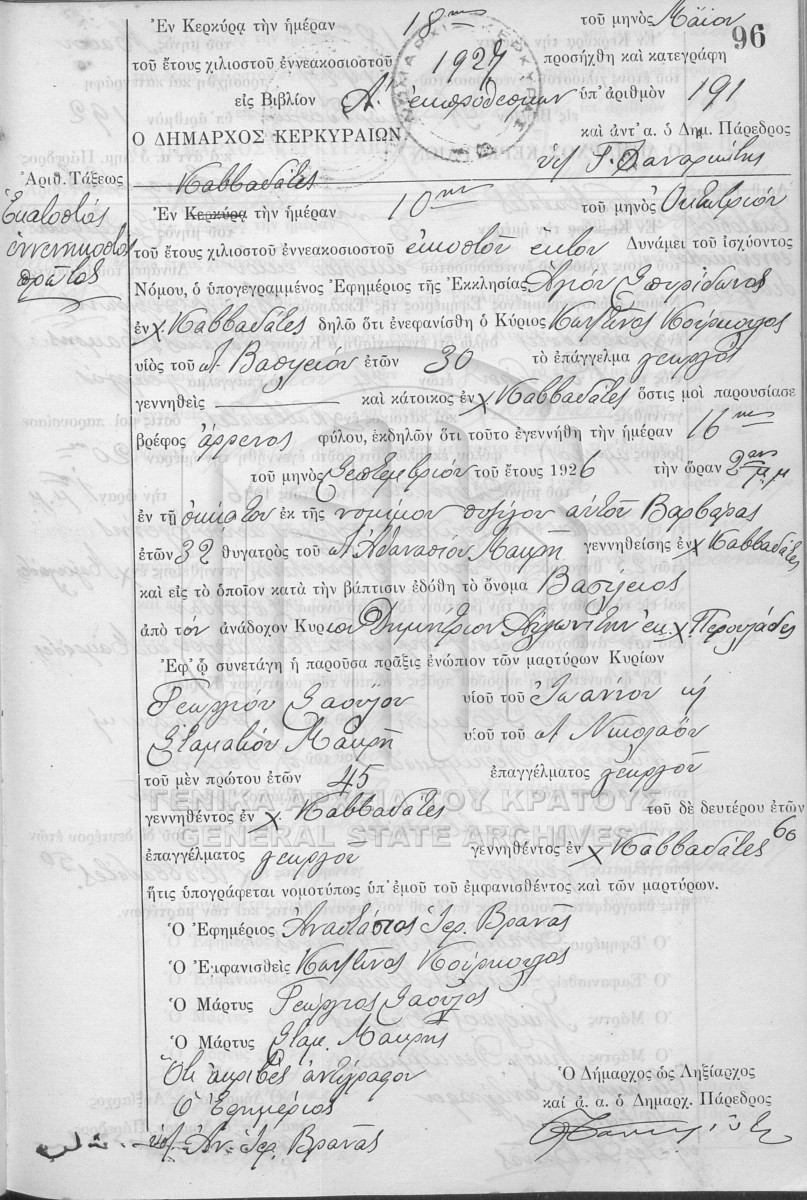 96
Ἐν Κερκύρᾳ τὴν ἡμέραν 18ην τοῦ μηνὸς Μαΐου
τοῦ ἔτους χιλιοστοῦ ἐννεακοσιοστοῦ 1927 προσήχθη καὶ κατεγράφη
εἰς Βιβλίον Α' ἐκπροθέσμων ὑπ' ἀριθμὸν 191
Ο ΔΗΜΑΡΧΟΣ ΚΕΡΚΥΡΑΙΩΝ καὶ ἀντ' α. ὁ Δημ. Πάρεδρος
Ἀριθ. Τάξεως
Ἑκατοστὸς ἐννενηκοστὸς πρῶτος
Καββαδάτες
Ἐν Κερκύρᾳ τὴν ἡμέραν 10ην τοῦ μηνὸς Ὀκτωβρίου
τοῦ ἔτους χιλιοστοῦ ἐννεακοσιοστοῦ εἰκοστοῦ ἕκτου Δυνάμει τοῦ ἰσχύοντος
Νόμου, ὁ ὑπογεγραμμένος Ἐφημέριος τῆς Ἐκκλησίας Ἁγίου Σπυρίδωνος
ἐν χ. Καββαδάτες δηλῶ ὅτι ἐνεφανίσθη ὁ Κύριος Κωνστῖνος Κούρκουλος
υἱὸς τοῦ Βασιλείου ἐτῶν 30 τὸ ἐπάγγελμα γεωργὸς
γεννηθεὶς καὶ κάτοικος ἐν χ Καββαδάτες ὅστις μοὶ παρουσίασε
βρέφος ἄρρενος φύλου, ἐκδηλῶν ὅτι τοῦτο ἐγεννήθη τὴν ἡμέραν 16ην
τοῦ μηνὸς Σεπτεμβρίου τοῦ ἔτους 1926 τὴν ὥραν 2αν μ.μ
ἐν τῇ οἰκίᾳ του ἐκ τῆς νομίμου συζύγου αὐτοῦ Βαρβάρας
ἐτῶν 32 θυγατρὸς τοῦ Ἀθανασίου Μακρῆ γεννηθείσης ἐν χ Καββαδάτες
καὶ εἰς τὸ ὁποῖον κατὰ τὴν βάπτισιν ἐδόθη τὸ ὄνομα Βασίλειος
ἀπὸ τὸν ἀνάδοχον Κυριον Δημήτριον ἐκ χ. Περουλάδες
Ἐφ' ᾧ συνετάγη ἡ παροῦσα πρᾶξις ἐνώπιον τῶν μαρτύρων Κυρίων
Γεωργίου Σαούλου υἱοῦ τοῦ Ἰωάννου κὴ
Σταματίου Μακρῆ υἱοῦ τοῦ Νικολάου
τοῦ μὲν πρώτου ἐτῶν 45 ἐπαγγέλματος γεωργοῦ
γεννηθέντος ἐν χ. Καββαδάτες τοῦ δὲ δευτέρου ἐτῶν 60
ἐπαγγέλματος γεωργοῦ γεννηθέντος ἐν χ Καββαδάτες
ἥτις ὑπογράφεται νομοτύπως ὑπ' ἐμοῦ τοῦ ἐμφανισθέντος καὶ τῶν μαρτύρων.
Ὁ Ἐφημέριος Ἀναστάσιος Ἱερ. Βρανᾶς
Ὁ Ἐμφανισθεὶς Κωνστῖνος Κούρκουλος
Ὁ Μάρτυς Γεώργιος Σαοῦλος
Ὁ Μάρτυς Σταμ. Μακρῆς
Ὅτι ἀκριβὲς ἀντίγραφον
Ὁ Ἐφημέριος
Ἀν. Ἱερ. Βρανᾶς
Ὁ Δήμαρχος ὡς Ληξίαρχος
καὶ ἀ. α. ὁ Δημαρχ. Πάρεδρος
ΓΕΝΙΚΑ ΑΡΧΕΙΑ ΤΟΥ ΚΡΑΤΟΥΣ
GENERAL STATE ARCHIVES